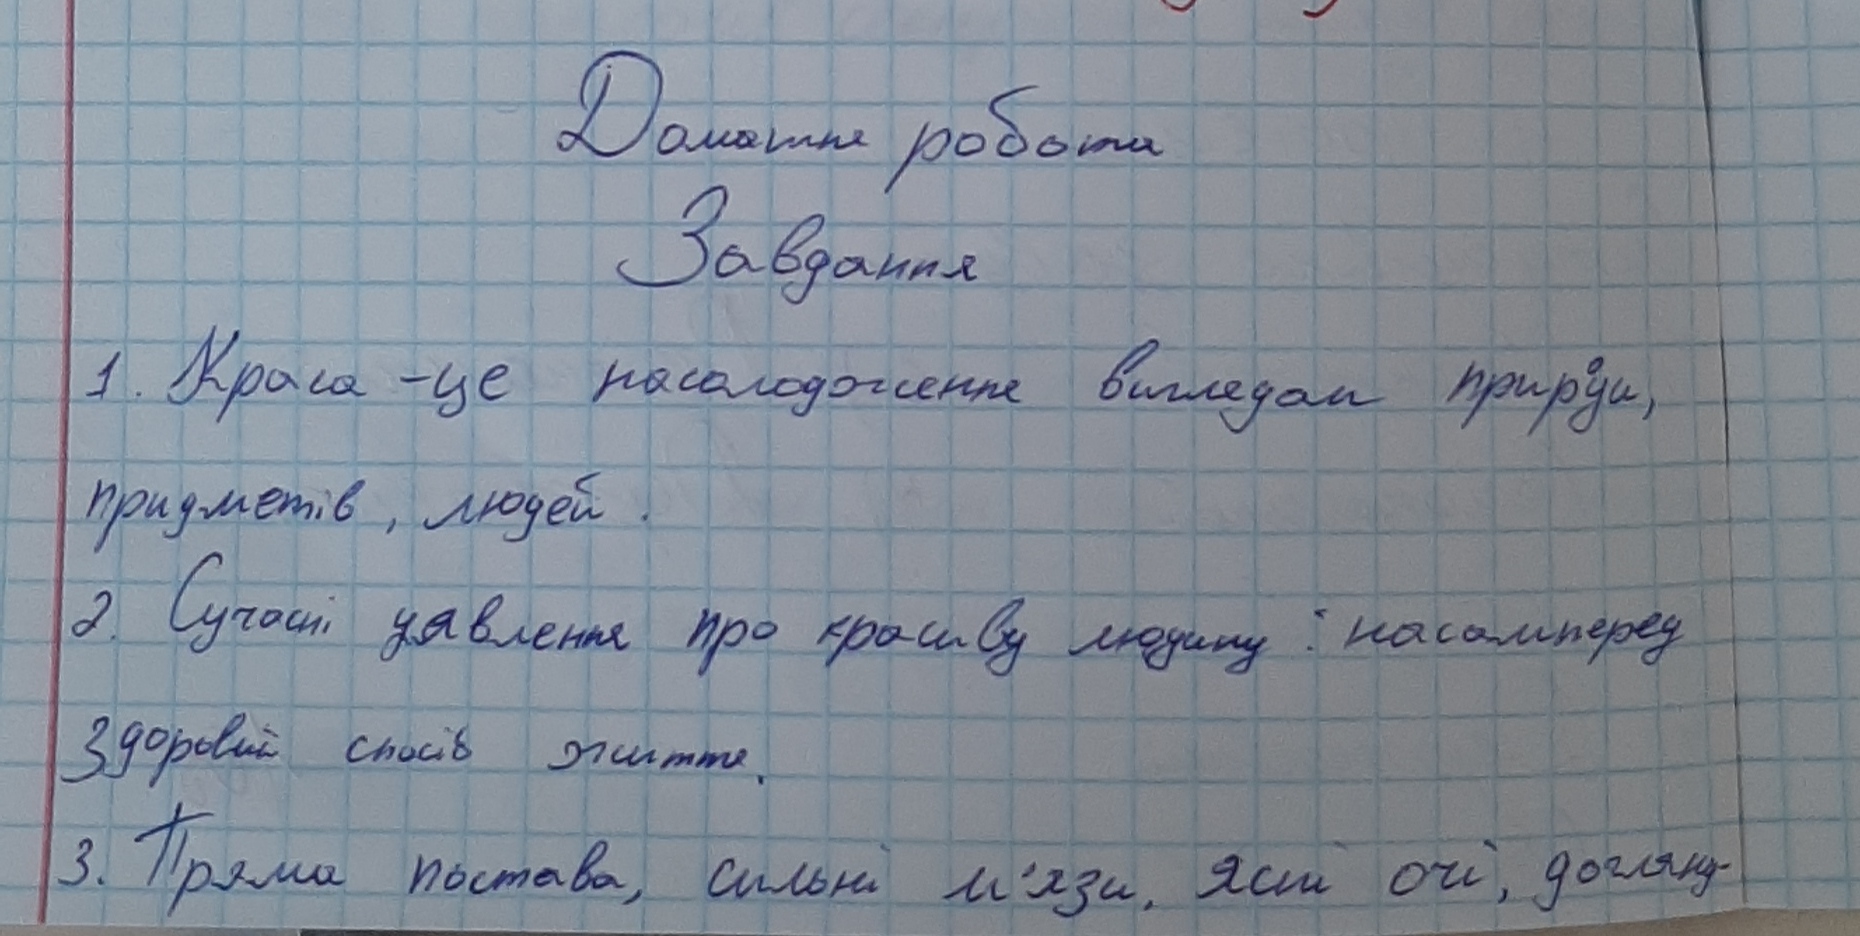 Домашня робота
Завдання
1. Краса - це насолодження виглядом природи,
придметів, людей.
2. Сучасні уявлення про красиву людину : насамперед
здоровий спосіб життя.
3. Пряма постава, сильні м'язи, ясні очі, догляну-